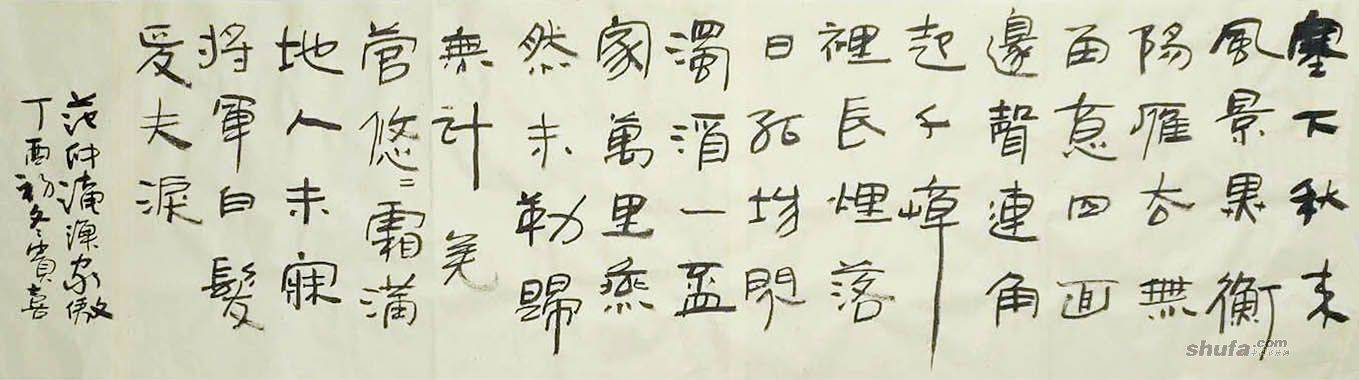 塞下秋来
風景異衡
陽雁去無
留意四面
邊聲連角
起千嶂
裡長煙落
日孤城閉
濁酒一盃
家萬里燕
然未勒歸
無計羌
管悠〻霜滿
地人未寐
将軍白髮
夫淚
范仲淹漁家傲
丁酉初冬賓喜
shufa.com